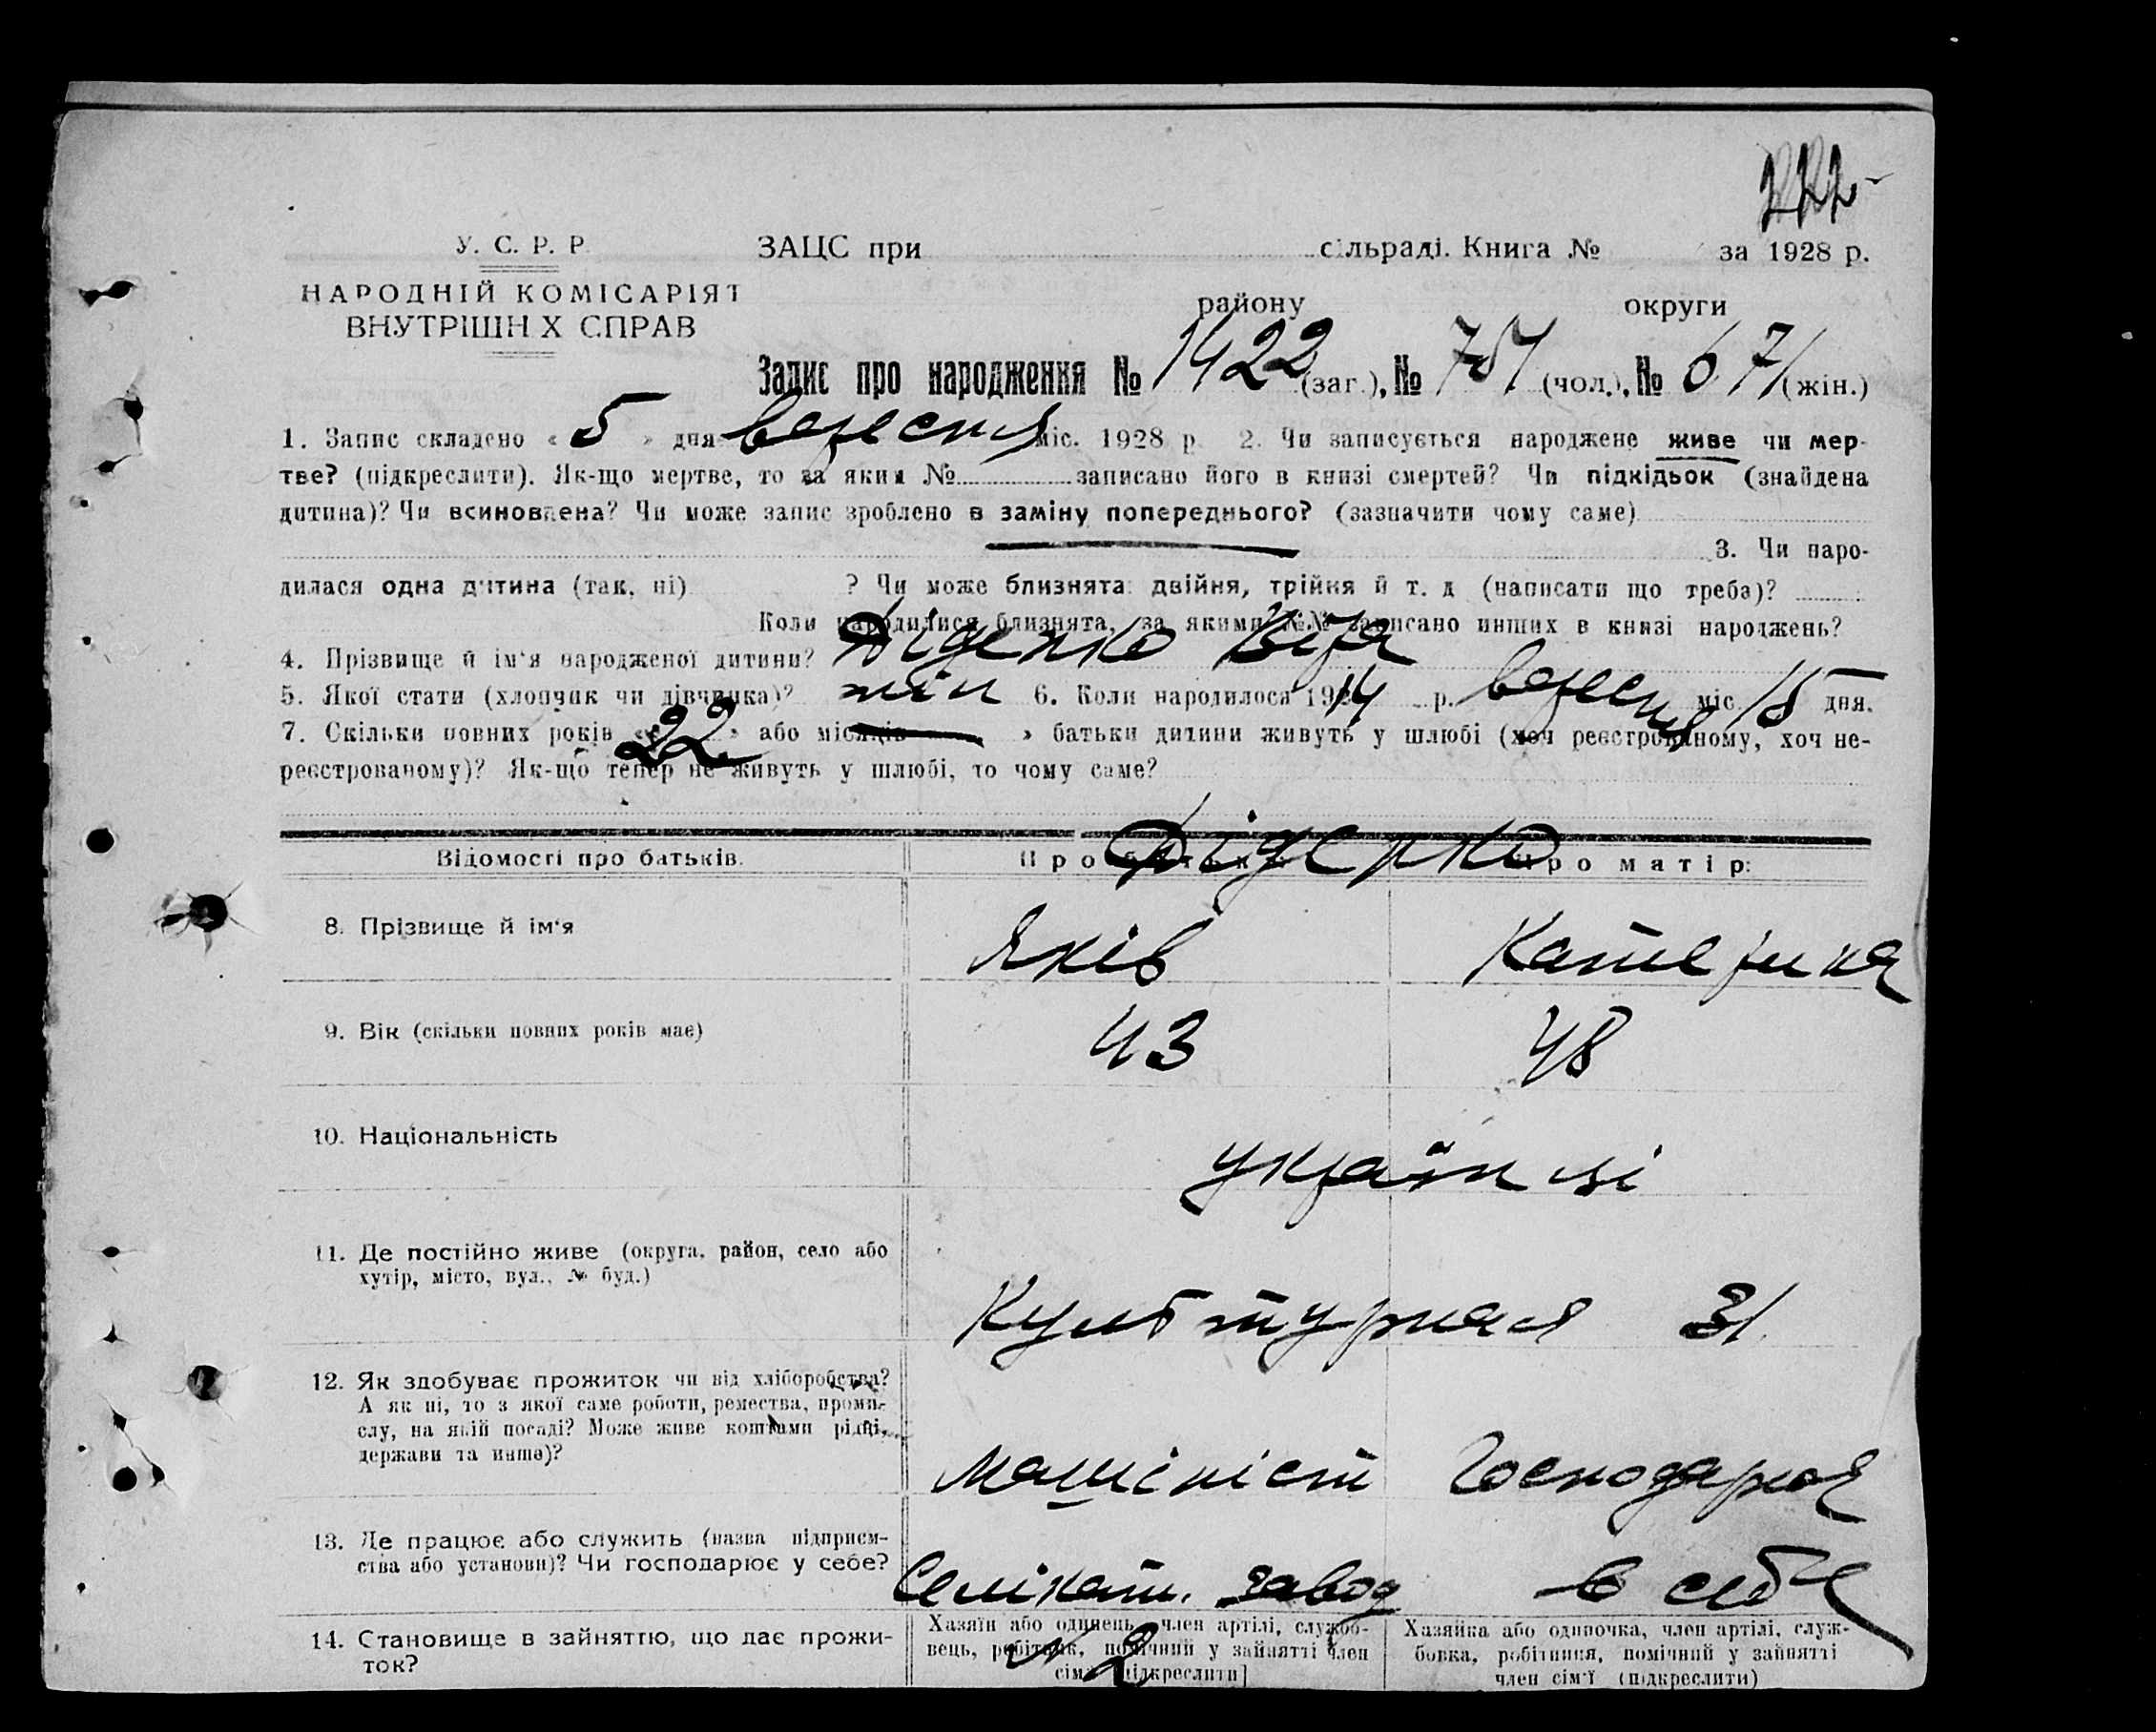 222
У. С. Р. Р. ЗАЦС при сільраді. Книга № за 1928 р.
НАРОДНІЙ КОМІСАРІЯТ району округи
ВНУТРІШН Х СПРАВ
Запис про народження № 1422 (заг.), № 751 (чол.), № 671 (жін.)
1. Запис складено « 5 » дня вересня міс. 1928 р. 2. Чи записується народжене живе чи мер-
тве? (підкреслити). Як-що мертве, то за яким № записано його в книзі смертей? Чи підкідьок (знайдена
дитина)? Чи всиновлена? Чи може запис зроблено в заміну попереднього? (зазначити чому саме)
3. Чи наро-
дилася одна дитина (так, ні) ? Чи може близнята: двійня, трійня й т. д. (написати що треба)?
Коли народилися близнята, за якими №№ записано инших в книзі народжень?
4. Прізвище й ім'я народженої дитини? Діденко Віра
5. Якої стати (хлопчик чи дівчинка)? жін 6. Коли народилося 1914 р. вересня міс. 15 дня.
7. Скільки повних років « 22 » або місяців » батьки дитини живуть у шлюбі (хоч реєстрованому, хоч не-
реєстрованому)? Як-що тепер не живуть у шлюбі, то чому саме?
Відомості про батьків. Про батька: Про матір:
Діденко
8. Прізвище й ім'я Яків Катерина
9. Вік (скільки повних років має) 43 48
10. Національність українці
11. Де постійно живе (округа, район, село або
хутір, місто, вул., № буд.) Культурная 31
12. Як здобуває прожиток чи від хліборобства?
А як ні, то з якої саме роботи, ремества, проми-
слу, на якій посаді? Може живе коштами рідні,
держави та инше)? машініст Господарює
13. Де працює або служить (назва підприєм-
ства або установи)? Чи господарює у себе? Сілікат. завод в себе
№ 2
14. Становище в зайняттю, що дає прожи-
ток?
Хазяїн або одинець, член артілі, службо-
вець, робітник, помічний у зайнятті член
сім'ї [підкреслити]
Хазяйка або одиночка, член артілі, служ-
бовка, робітниця, помічний у зайнятті
член сім'ї (підкреслити)